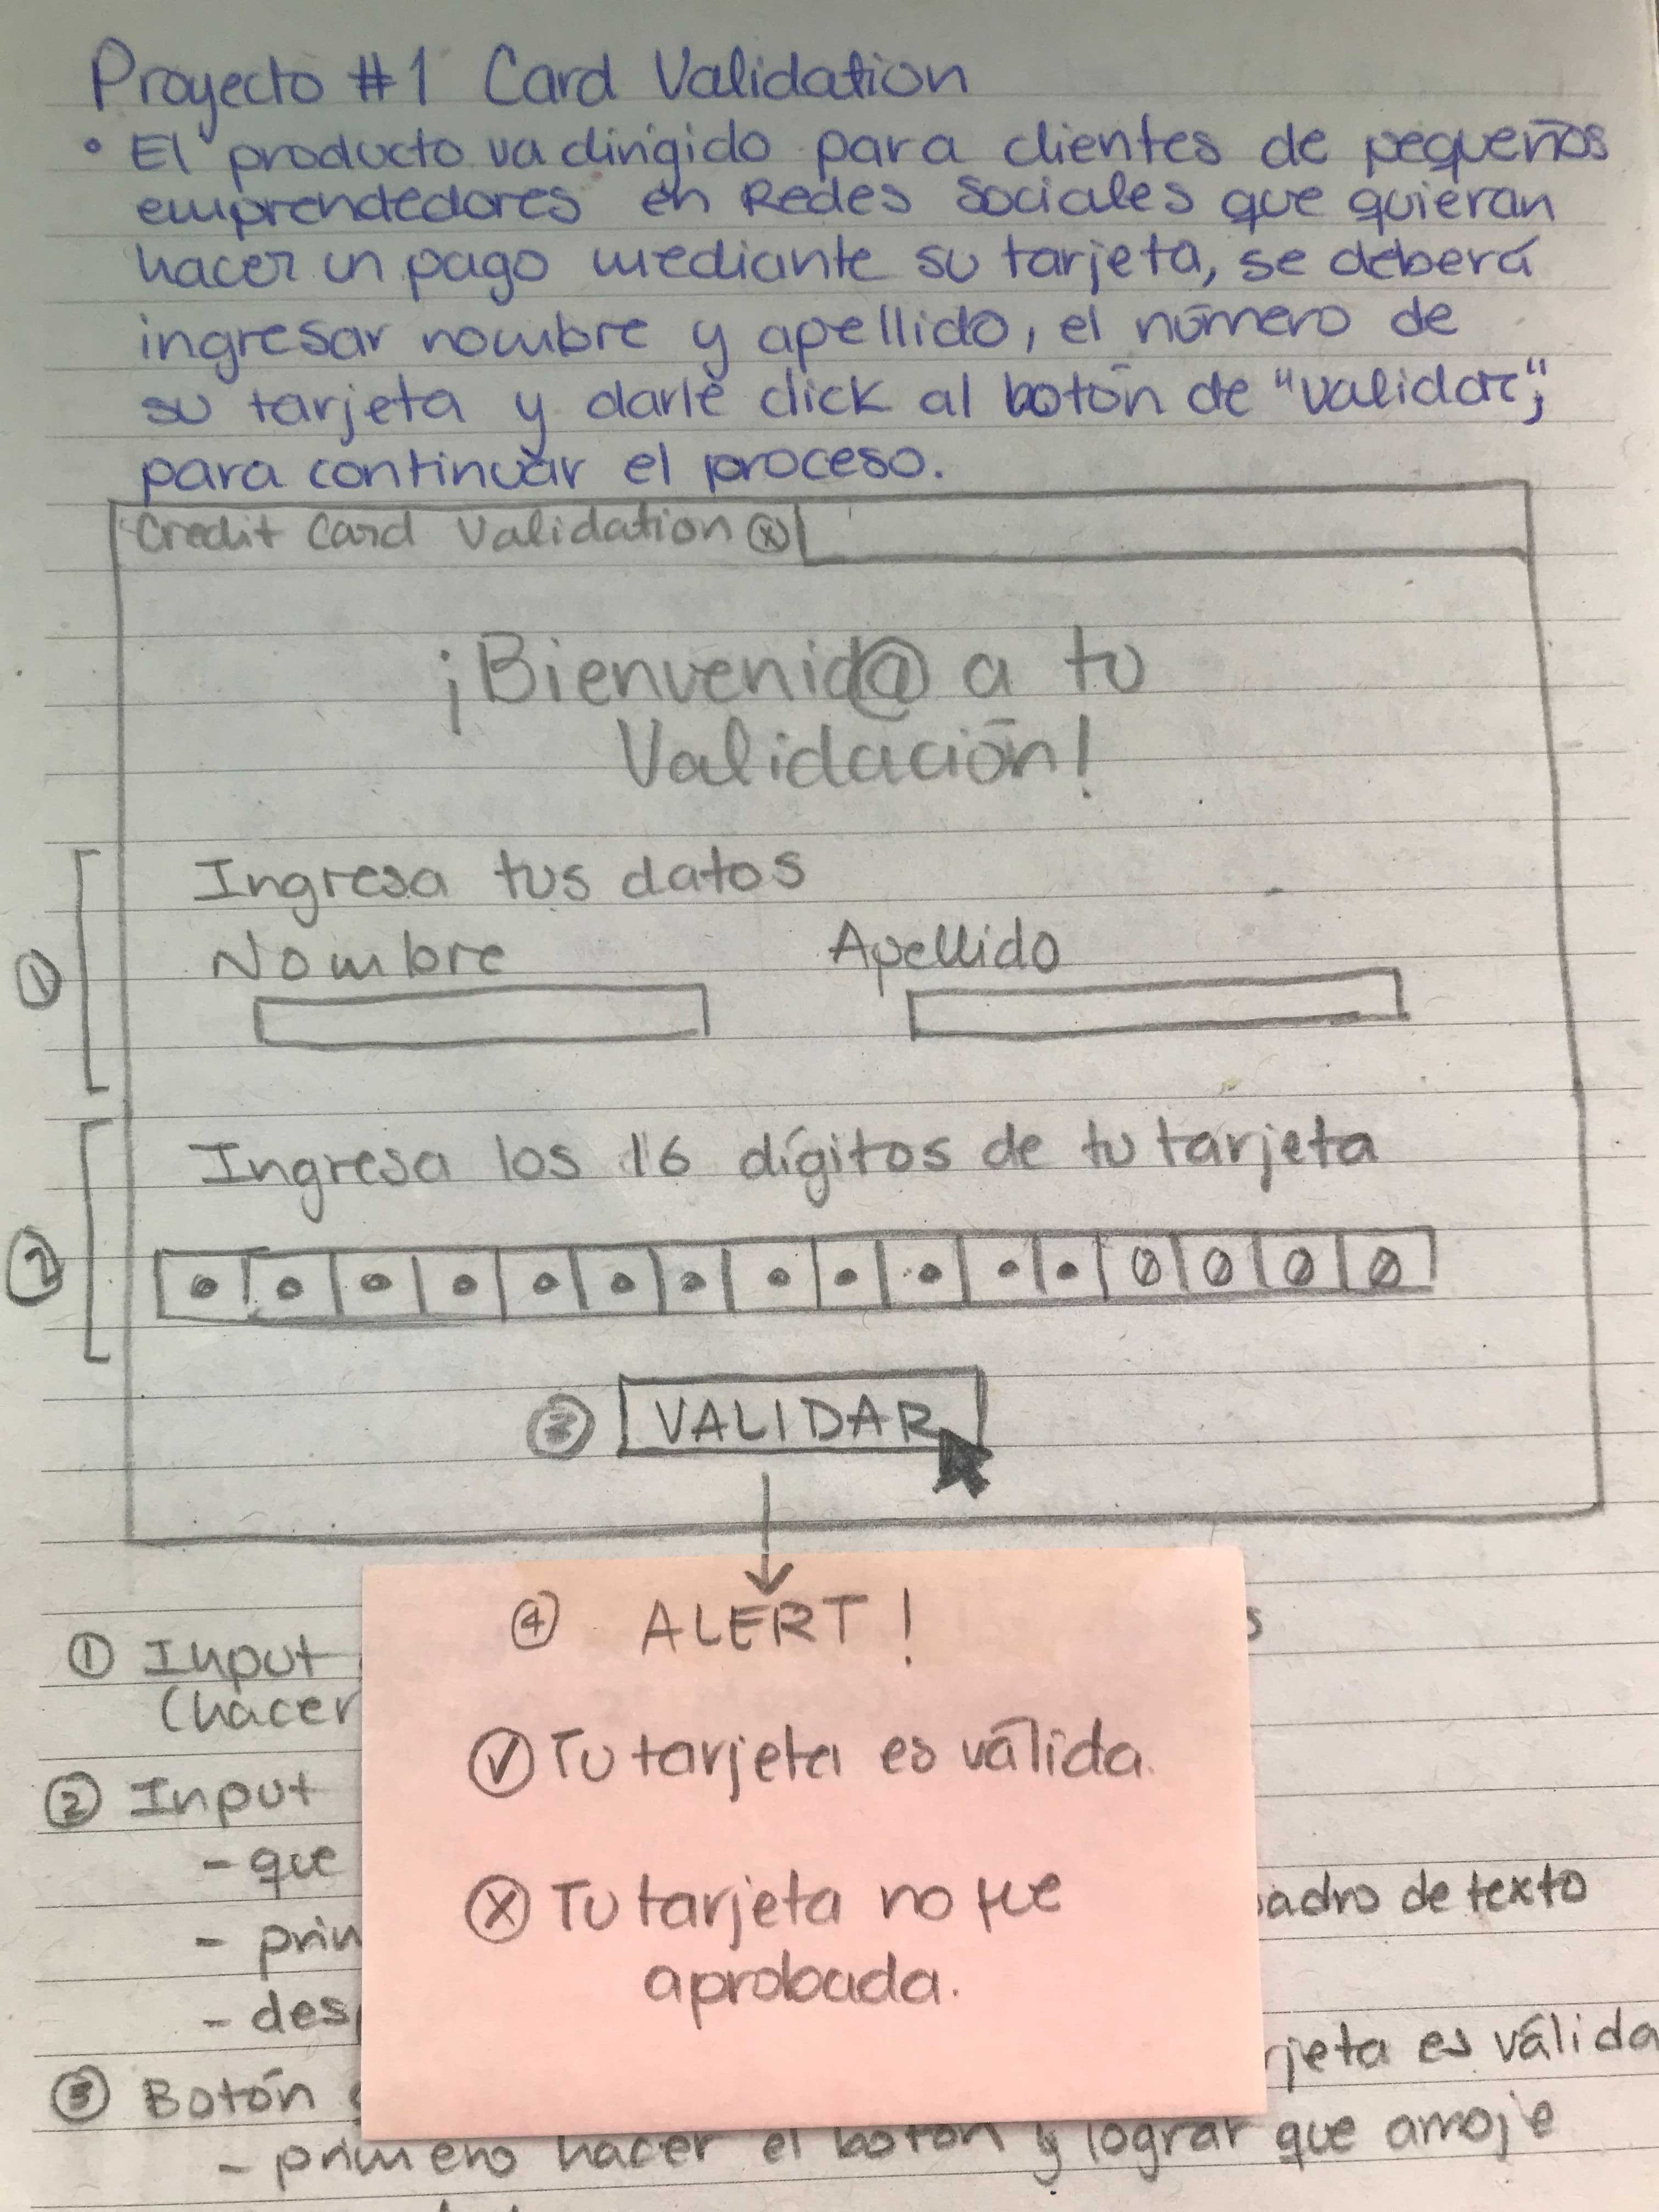 Proyecto #1 Card Validation
• El producto va dirigido para clientes de pequeños
emprendedores en Redes Sociales que quieran
hacer un pago mediante su tarjeta, se deberá
ingresar nombre y apellido, el número de
su tarjeta y darle click al botón de "validar",
para continuar el proceso.
Credit Card Validation ⓧ
¡Bienvenid@ a tu
Validación!
① Ingresa tus datos
Nombre Apellido
② Ingresa los 16 dígitos de tu tarjeta
• • • • • • • • • • • • 0 0 0 0
③ VALIDAR
④ ALERT!
✓ Tu tarjeta es válida.
ⓧ Tu tarjeta no fue
aprobada.
① Input
(hacer
② Input
- que
- de texto
-
③ Botón es válida
- primero hacer el botón y lograr que arroje